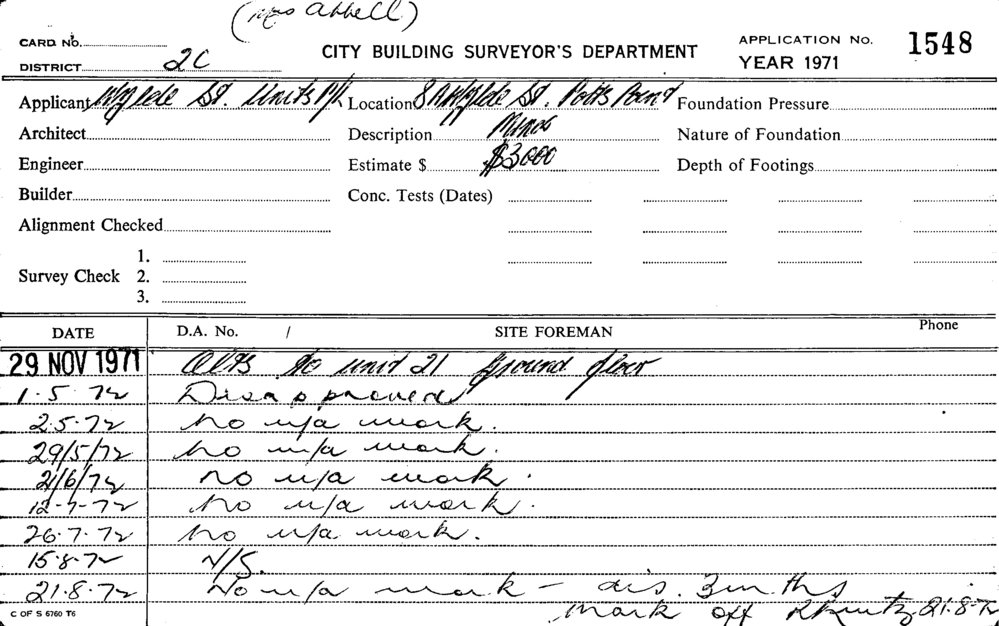 (Mrs Abbell)
CARD No.
DISTRICT 2C
CITY BUILDING SURVEYOR'S DEPARTMENT
APPLICATION No. 1548
YEAR 1971
Applicant Wylde St. Units P/L Location 8A Wylde St. Potts Point Foundation Pressure
Architect Description Minor Nature of Foundation
Engineer Estimate $ $3000 Depth of Footings
Builder Conc. Tests (Dates)
Alignment Checked
Survey Check 1.
2.
3.
DATE D.A. No. / SITE FOREMAN Phone
29 NOV 1971 Alts to unit 21 ground floor
1.5.72 Disapproved
2.5.72 No u/a work.
29/5/72 No u/a work.
21/6/72 No u/a work.
12-7-72 No u/a work.
26.7.72 No u/a work.
15.8.72 N/S.
21.8.72 No u/a work – dis. 3 mths
C OF S 6760 T6 mark off 21.8.72